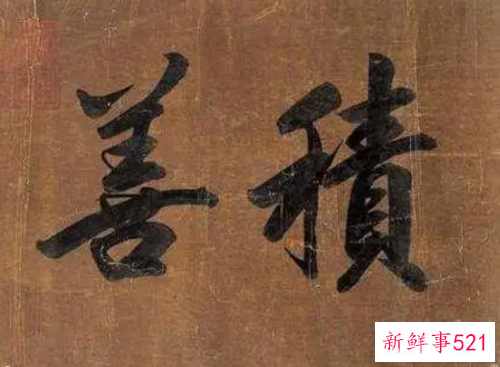 積善
新鲜事521